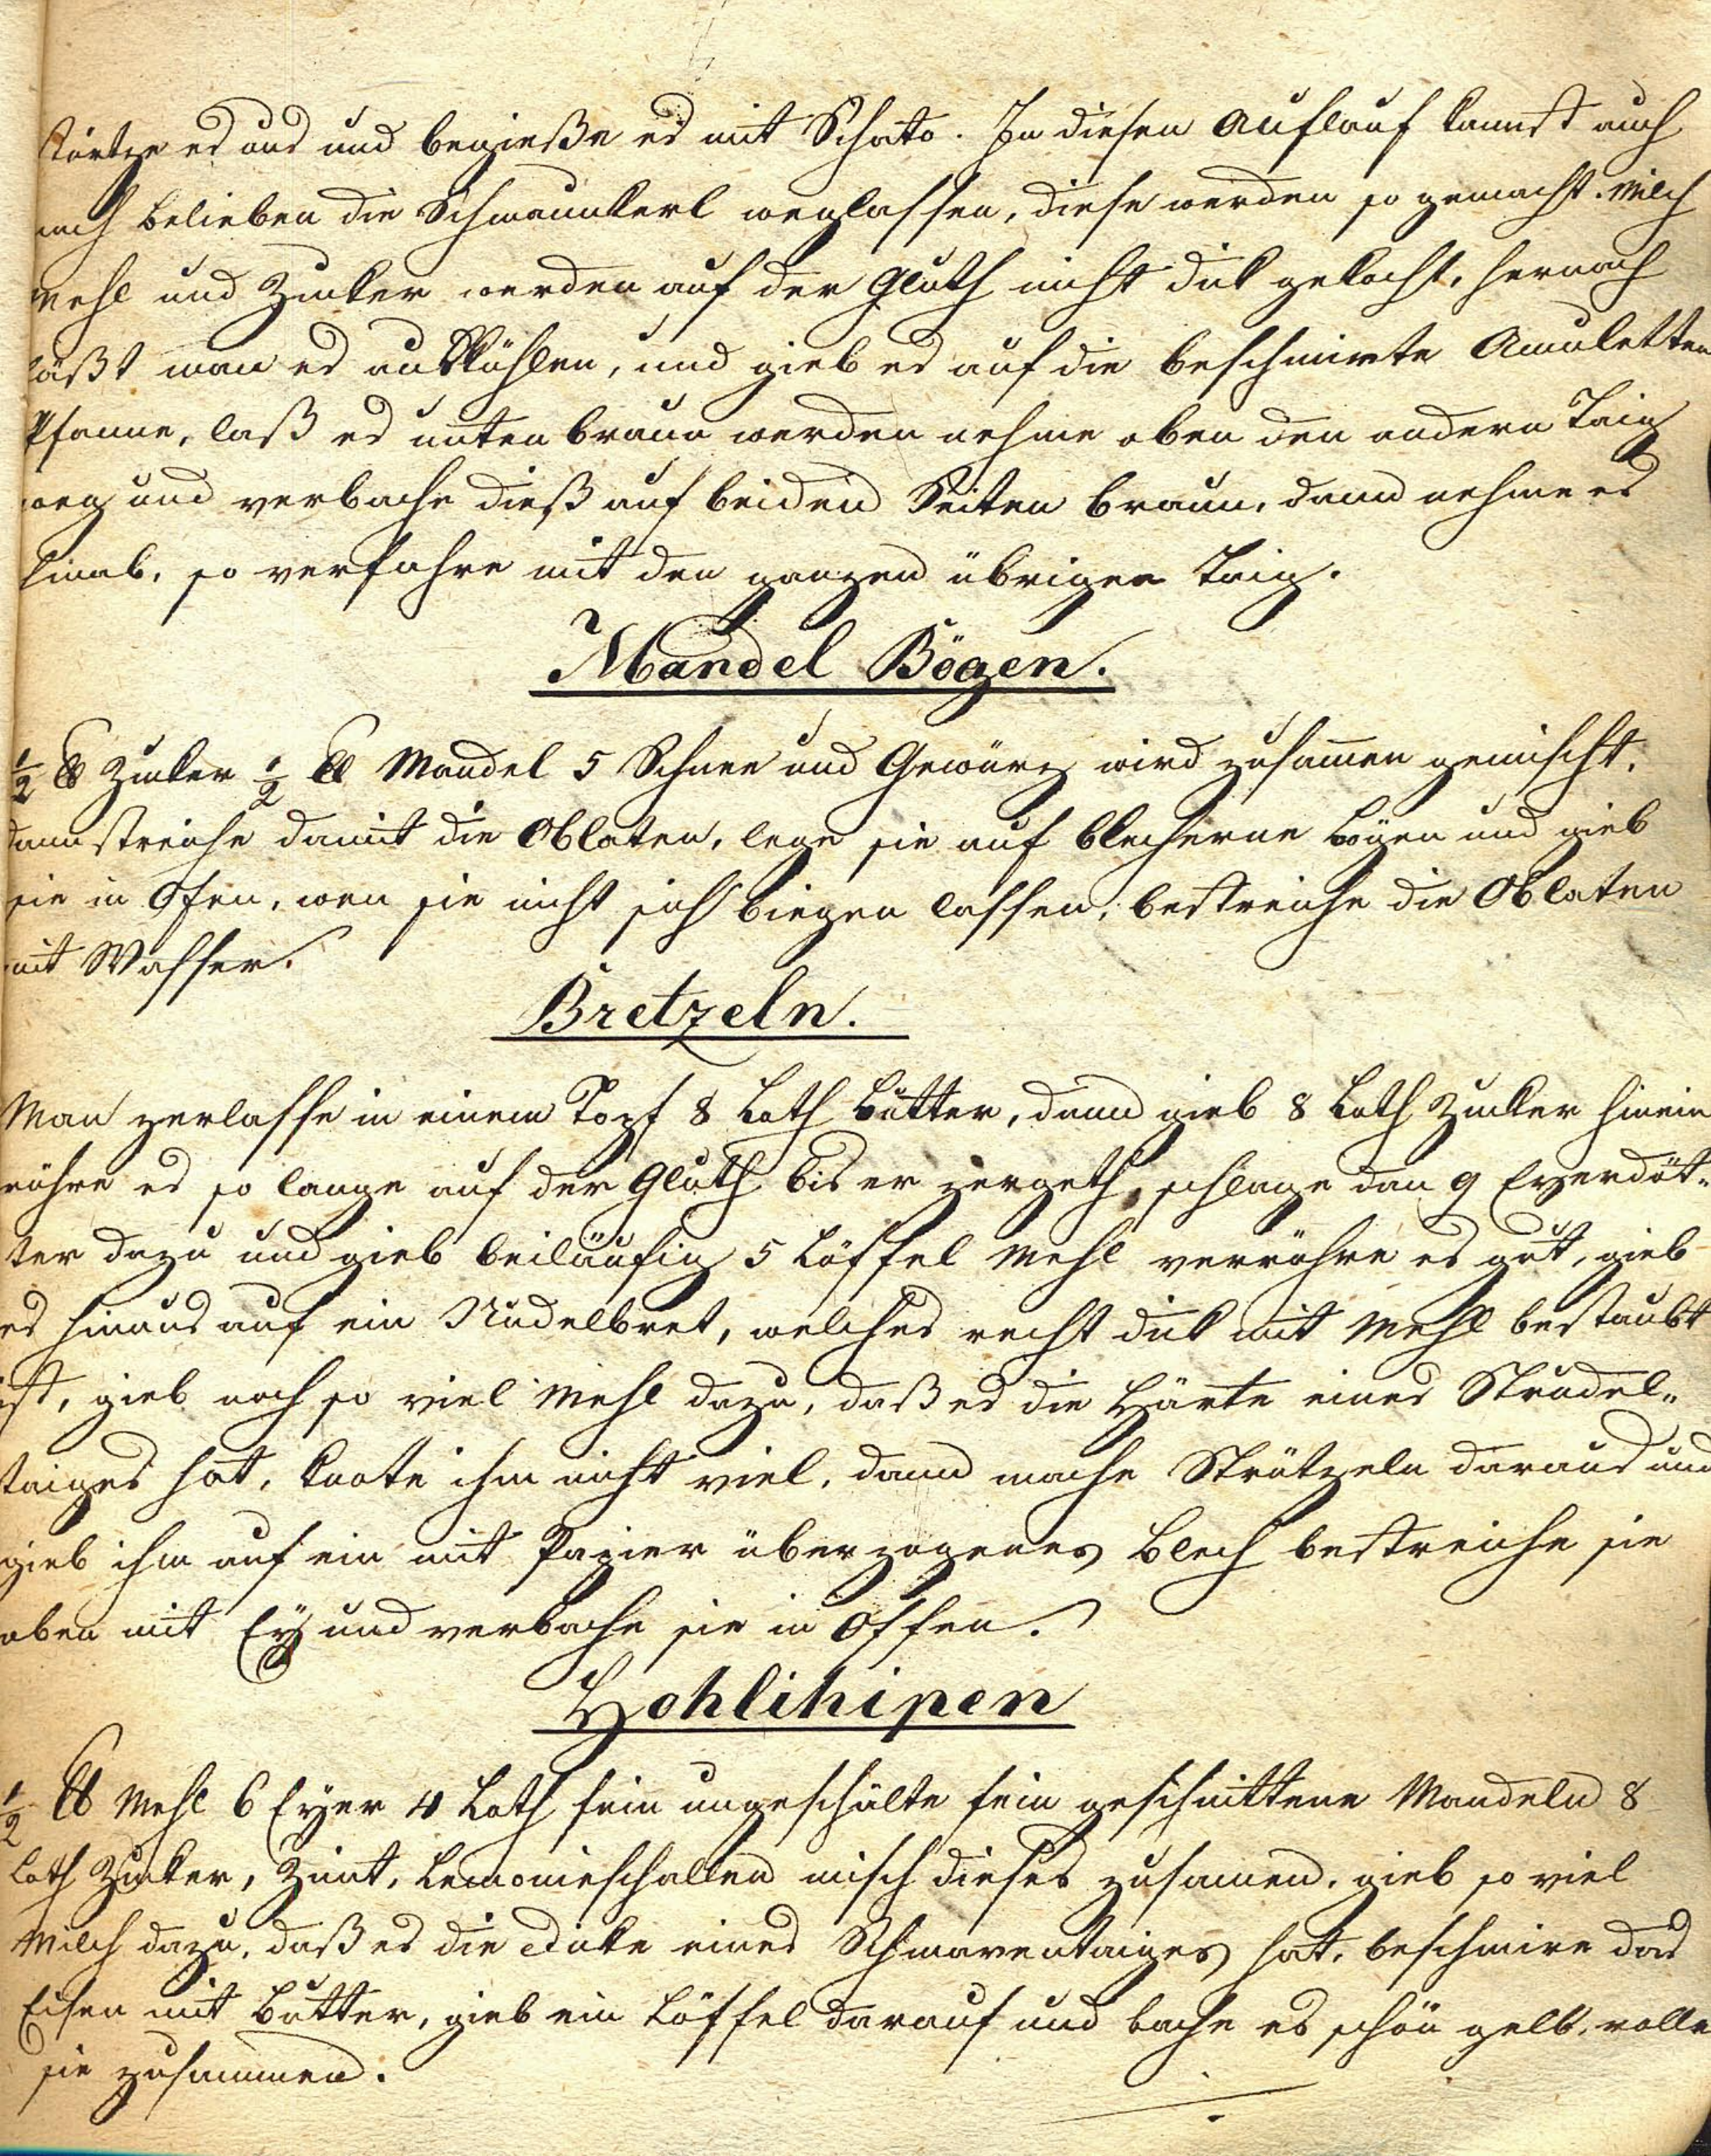 stürtze es aus und begieße es mit Schato. In diesen Auflauf kannst auch
nach Belieben die Schmannkerl weglassen, diese werden so gemacht. Milch
Mehl und Zucker werden auf der Gluth nicht dik gekocht, hernach
läßt man es auskühlen, und gieb es auf die beschmirte Amuletten
Pfanne, laß es unten braun werden nehme oben den andern Taig
weg und verbache dieß auf beiden Seiten braun, dann nehme es
hinab, so verfahre mit den ganzen übrigen Taig.
Mandel Bögen.
½ ℔ Zucker ½ ℔ Mandel 5 Schnee und Gewürz wird zusam̄en gemischt,
dann streiche damit die Oblaten, lege sie auf blecherne Bögen und gieb
sie in Ofen, wen sie nicht sich biegen lassen, bestreiche die Oblaten
mit Wasser.
Bretzeln.
Man zerlasse in einem Topf 8 Loth Butter, dann gieb 8 Loth Zucker hinein
rühre es so lange auf der Gluth bis er zergeth, schlage dan 9 Eyerdöt-
ter dazu und gieb beiläufig 5 Löffel Mehl verrühre es gut, gieb
es hinaus auf ein Nudelbret, welches recht dik mit Mehl bestaubt
ist, gieb noch so viel Mehl dazu, daß es die Härte eines Strudel-
taiges hat, knete ihm nicht viel, dann mache Strützeln daraus und
gieb ihm auf ein mit Papier überzogenes Blech bestreiche sie
oben mit Ey und verbache sie in Offen.
Hohlihipen
½ ℔ Mehl 6 Eyer 4 Loth fein ungeschälte fein geschnittene Mandeln 8
Loth Zucker, Zimt, Lemonieschallen misch dieses zusamen, gieb so viel
Milch dazu, daß es die Dicke eines Schmarentaiges hat, beschmire das
Eisen mit Butter, gieb ein Löffel darauf und bache es schön gelb, rolle
sie zusammen.